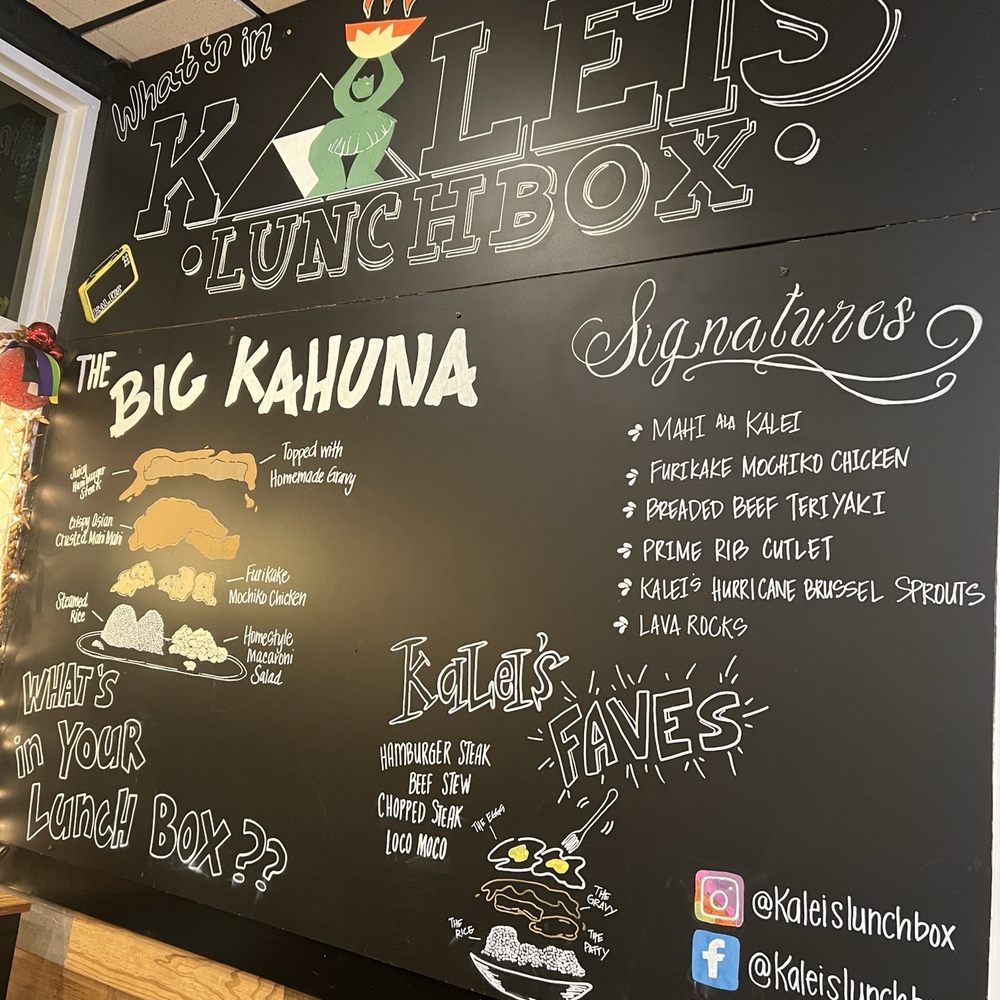 What's in
KALEIS
LUNCHBOX
THE BIG KAHUNA
Juicy
Hamburger
Steak
Topped with
Homemade Gravy
Crispy Asian
Crusted Mahi Mahi
Furikake
Mochiko Chicken
Steamed
Rice
Homestyle
Macaroni
Salad
WHAT'S
in YOUR
LUNCH BOX??
Signatures
MAHI ALA KALEI
FURIKAKE MOCHIKO CHICKEN
BREADED BEEF TERIYAKI
PRIME RIB CUTLET
KALEI'S HURRICANE BRUSSEL SPROUTS
LAVA ROCKS
KALEI'S
FAVES
HAMBURGER STEAK
BEEF STEW
CHOPPED STEAK
LOCO MOCO
THE EGGS
THE
GRAVY
THE
RICE
THE
PATTY
@Kaleislunchbox
@Kaleislunchb